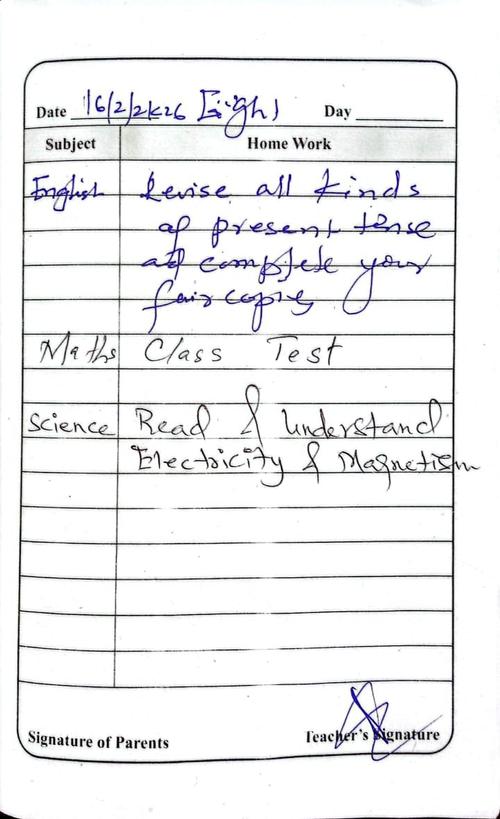 Date 16/2/2k26 [Eigh] Day
Subject Home Work
English Revise all kinds
of present tense
ad complete your
fair copies
Maths Class Test
Science Read & Understand
Electricity & Magnetism
Signature of Parents Teacher's Signature